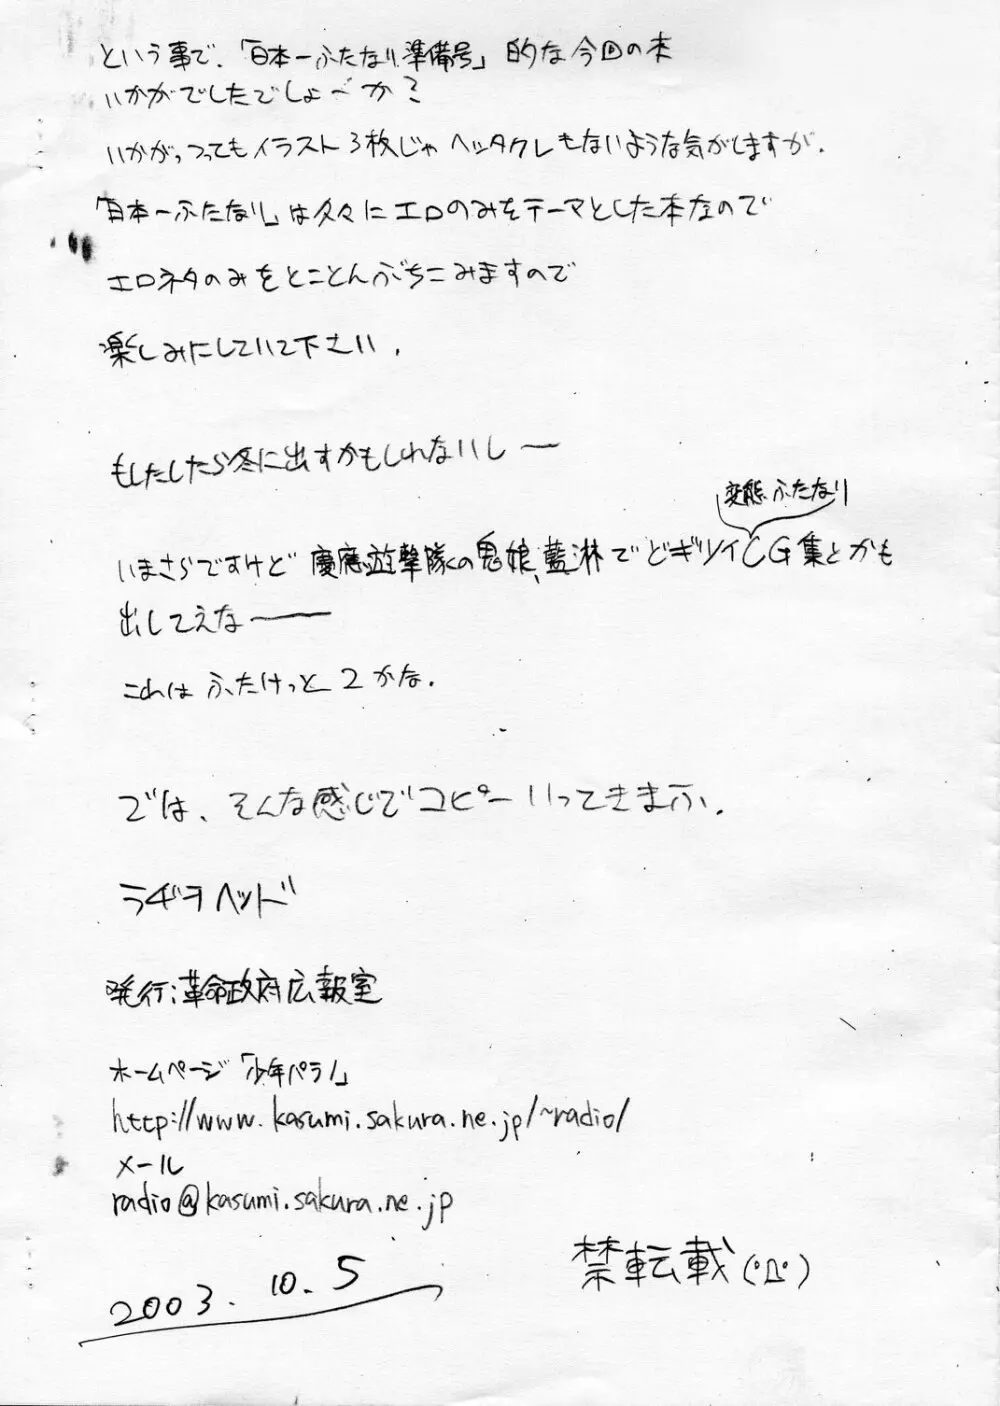 という事で、「日本一ふたなり準備号」的な今回の本
いかがでしたでしょーか?
いかがっつってもイラスト3枚じゃヘッタクレもないような気がしますが.
「日本一ふたなり」は久々にエロのみをテーマとした本なので
エロネタのみをとことんぶちこみますので
楽しみにしていて下さい.
もしたしたら冬に出すかもしれないしー
変態ふたなり
いまさらですけど慶應遊撃隊の鬼娘、藍淋でどギツイCG集とかも
出してえなー
これはふたけっと2かな.
では、そんな感じでコピーいってきまふ.
ラヂヲヘッド
発行:革命政府広報室
ホームページ「少年パラノ」
http://www.kasumi.sakura.ne.jp/~radio/
メール
radio@kasumi.sakura.ne.jp
2003.10.5
禁転載(゚Д゚)